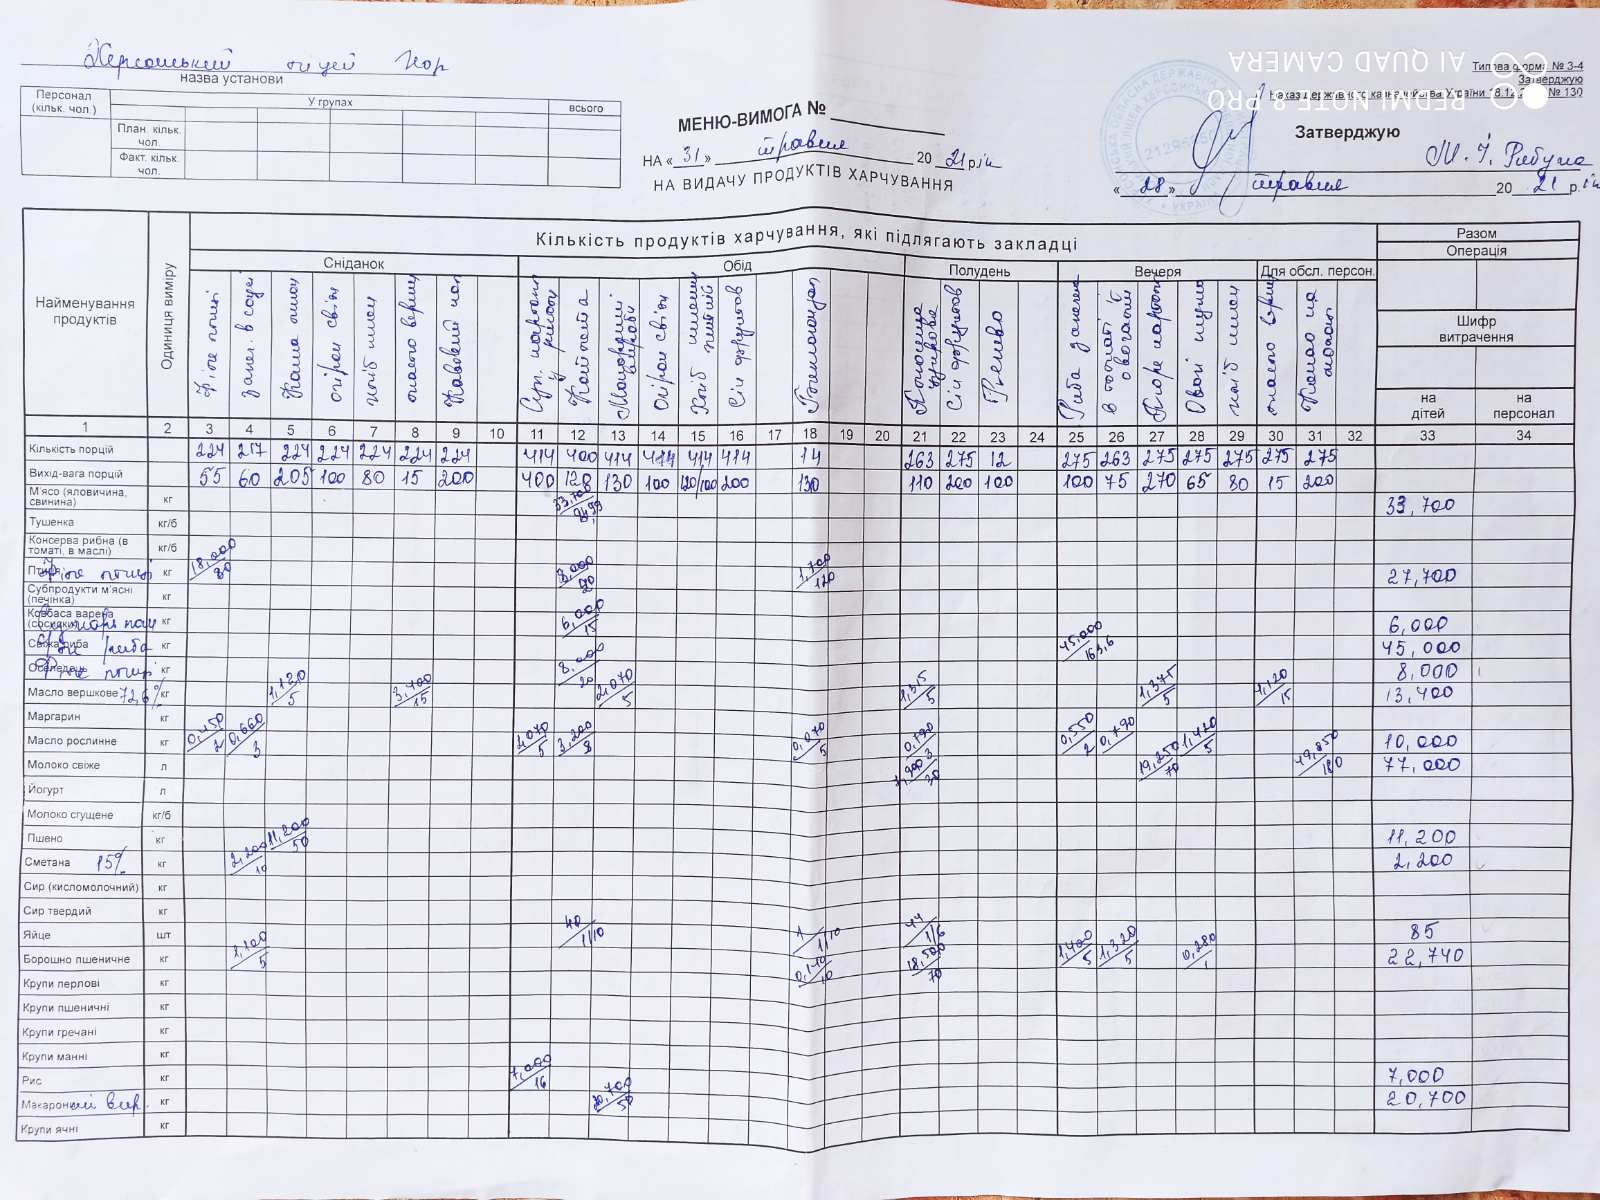 Херсонський ліцей
назва установи
Персонал (кільк. чол.)
У групах
всього
План. кільк. чол.
Факт. кільк. чол.
МЕНЮ-ВИМОГА №
НА «31» травня 2021 рік
НА ВИДАЧУ ПРОДУКТІВ ХАРЧУВАННЯ
AI QUAD CAMERA
REDMI NOTE 8 PRO
Типова форма № З-4
Затверджую
Наказ державного казначейства України 18.12.2000 № 130
Затверджую
«28» травня 2021 рік
Найменування продуктів
Одиниця виміру
Кількість продуктів харчування, які підлягають закладці
Разом
Операція
Сніданок Обід Полудень Вечеря Для обсл. персон.
Шифр витрачення
на дітей
на персонал
1 2 3 4 5 6 7 8 9 10 11 12 13 14 15 16 17 18 19 20 21 22 23 24 25 26 27 28 29 30 31 32 33 34
Кількість порцій 224 217 224 224 224 224 224 414 400 414 414 414 414 14 263 275 12 275 263 275 275 275 275 275
Вихід-вага порцій 55 60 205 100 80 15 200 400 120 130 100 120/100 200 130 110 200 100 100 75 270 65 80 15 200
М'ясо (яловичина, свинина) кг 33,700
Тушенка кг/б
Консерва рибна (в томаті, в маслі) кг/б
Філе птиці кг 18,000/80 8,000/20 1,700/120 27,700
Субпродукти м'ясні (печінка) кг
Ковбаса варена (сосиски) кг 6,000/15 6,000
Свіжа риба кг 45,000/163,6 45,000
Оселедець кг 8,000/20 8,000
Масло вершкове 72,6% кг 1,120/5 3,400/15 2,070/5 1,315/5 1,375/5 4,120/15 13,400
Маргарин кг
Масло рослинне кг 0,450/2 0,660/3 2,070/5 3,200/8 0,070/5 0,790/3 0,550/2 0,790 1,420/5 10,000
Молоко свіже л 7,900/30 19,250/70 49,850/180 77,000
Йогурт л
Молоко сгущене кг/б
Пшено кг 11,200/50 11,200
Сметана 15% кг 2,200/10 2,200
Сир (кисломолочний) кг
Сир твердий кг
Яйце шт 40/1/10 1/1/10 44/1/6 85
Борошно пшеничне кг 1,100/5 0,140/10 18,500/70 1,400/5 1,320/5 0,280/1 22,740
Крупи перлові кг
Крупи пшеничні кг
Крупи гречані кг
Крупи манні кг
Рис кг 7,000/16 7,000
Макаронні вир. кг 20,700/50 20,700
Крупи ячні кг